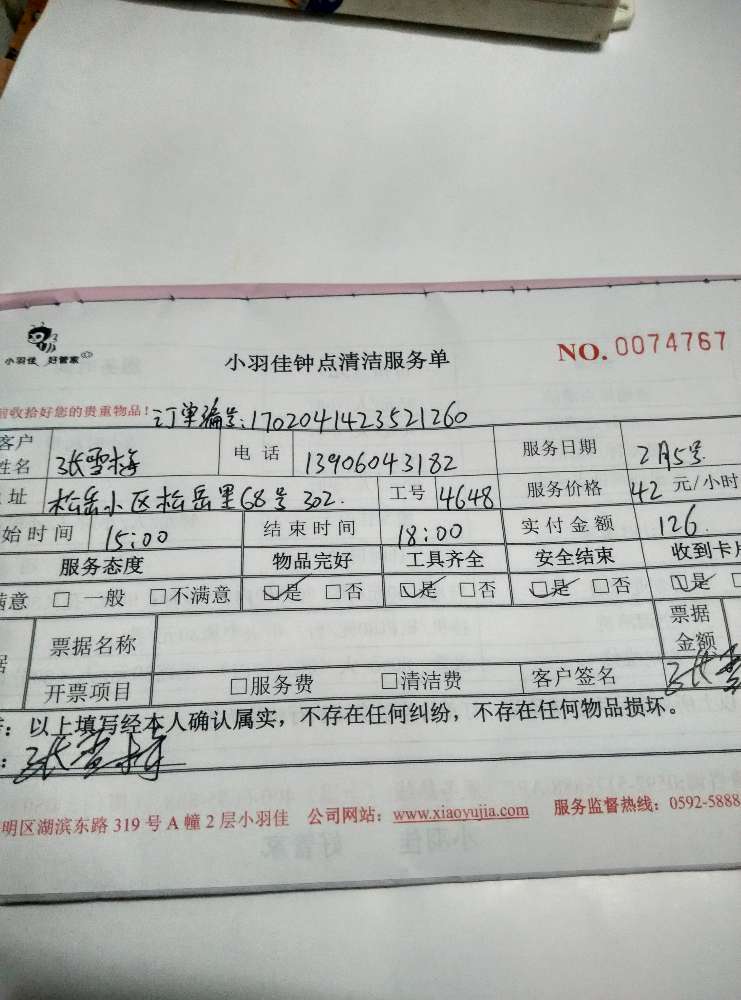 小羽佳 好管家
小羽佳钟点清洁服务单
NO. 0074767
前收拾好您的贵重物品! 订单编号:1702041423521260
客户姓名 张雪梅 电话 13906043182 服务日期 2月5号
址 松岳小区松岳里68号302. 工号 4648 服务价格 42 元/小时
始时间 15:00 结束时间 18:00 实付金额 126.
服务态度 物品完好 工具齐全 安全结束 收到卡片
满意 □ 一般 □不满意 ☑是 □否 ☑是 □否 ☑是 □否 ☑是
据 票据名称 票据金额
开票项目 □服务费 □清洁费 客户签名 张雪
: 以上填写经本人确认属实,不存在任何纠纷,不存在任何物品损坏。
: 张雪梅
明区湖滨东路 319 号 A 幢 2 层小羽佳 公司网站: www.xiaoyujia.com 服务监督热线: 0592-5888